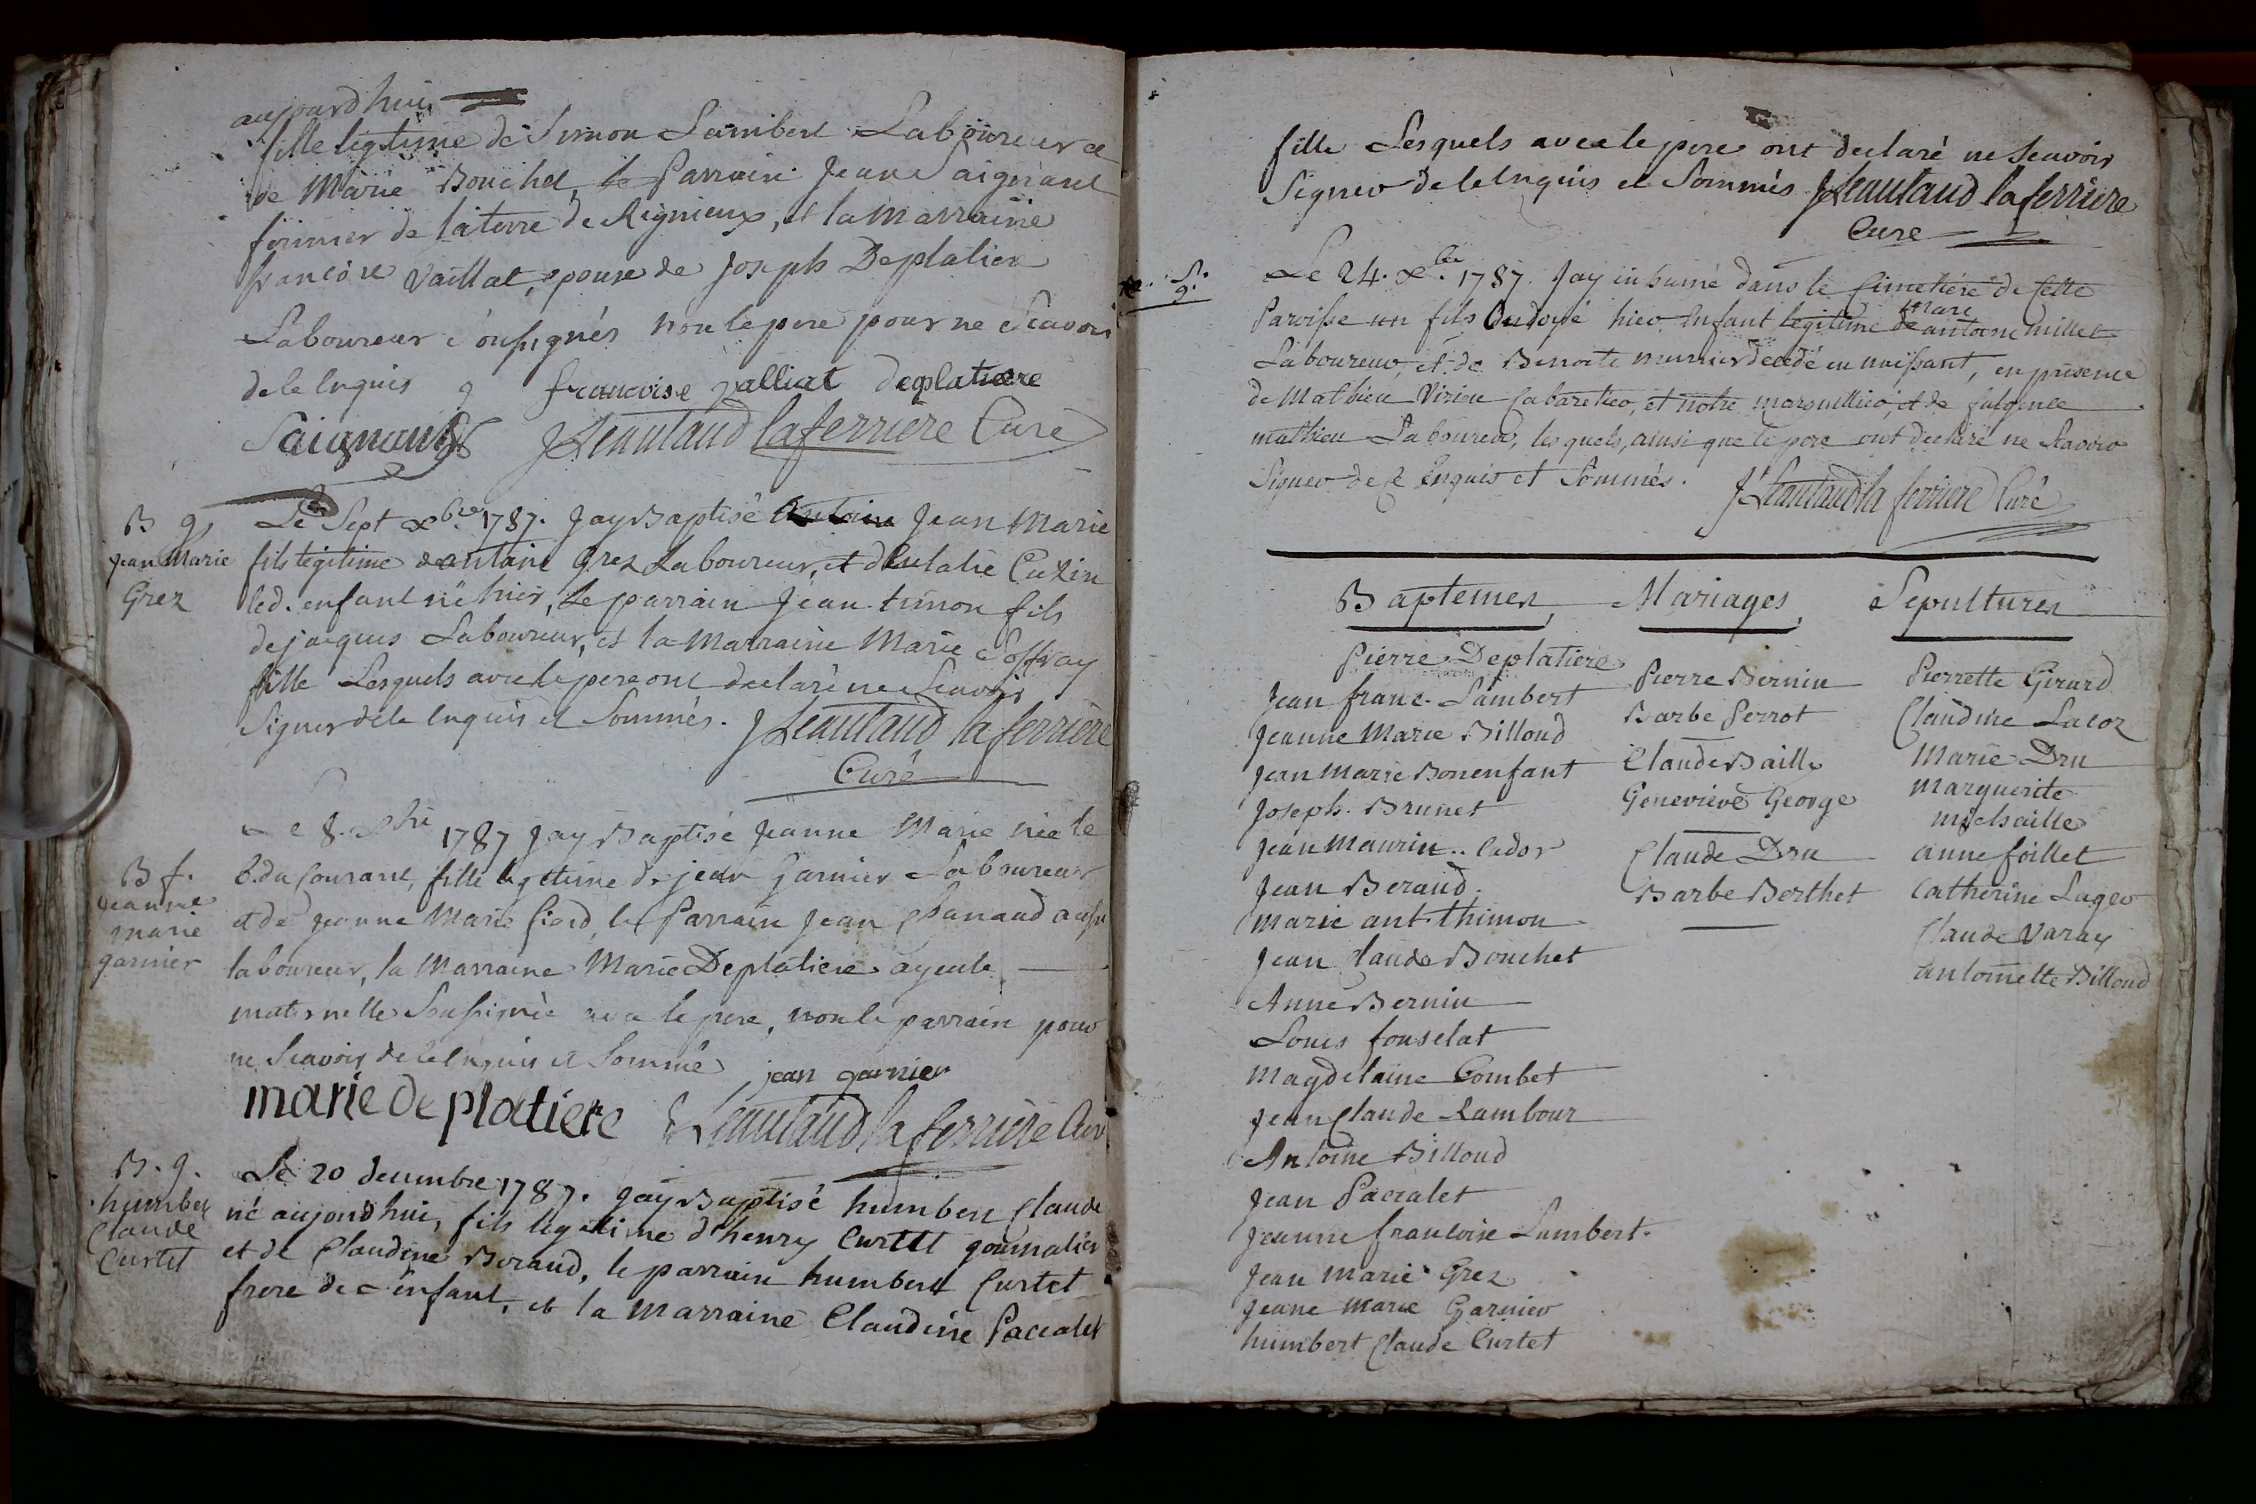 aujourdhui
fille legitime de Simon Lambert Laboureur et
de Marie Bouchet, le Parrain Jean Saignant
fermier de la terre de Rignieux, et la Marraine
francoise Vaillat, epouse de Joseph Deplatiere
Laboureur soussignés non le pere pour ne Scavoir
de ce Enquis francoise valliat deplatiere
Saignant JLeautaud laferriere Curé
B g
jean Marie
Grez
Le Sept xbre 1787. Jay Baptisé Antoine Jean Marie
fils legitime dantoine Grez Laboureur, et dEulalie Cuzin
led. enfant né hier, Le parrain Jean timon fils
de jacques Laboureur, et la Marraine Marie Soffray
fille Lesquels avec le pere ont declaré ne Scavoir
Signer de ce Enquis et Sommés. JLeautaud la ferriere
Curé
B f.
jeanne
marie
garnier
Le 8. xbre 1787 Jay Baptisé Jeanne Marie née le
6. du Courant, fille legitime de jean Garnier Laboureur
et de jeanne Marie fiard, le Parrain Jean Panaud aussi
laboureur, la Marraine Marie Deplatiere ayeule
maternelle Soussignée avec le pere, non le parrain pour
ne Scavoir de ce Enquis et Sommé jean garnier
marie deplatiere JLeautaud la ferriere Curé
B. g.
humbert
Claude
Curtet
Le 20 decembre 1787. Jay Baptisé humbert Claude
né aujourdhui, fils legitime d'henry Curtet journalier
et de Claudine Beraud, le parrain humbert Curtet
frere de l'enfant, et la Marraine Claudine Paccalet
fille Lesquels avec le pere ont declaré ne Scavoir
Signer de ce Enquis et Sommés JLeautaud laferriere
Curé
S. g.
Le 24. xbre 1787. Jay inhumé dans le Cimetiere de Cette
Paroisse un fils Ondoyé hier Enfant legitime de marc antoine millet
Laboureur, et de Benoite munier decedé en naissant, en presence
de Mathieu Virieu Cabaretier, et notre marguillier, et de fulgence
mathieu Laboureur, lesquels, ainsi que le pere ont declaré ne Scavoir
Signer de ce Enquis et Sommés. JLeautaud la ferriere Curé
Baptemes Mariages Sepultures
Pierre Deplatiere
Jean franc. Lambert
Jeanne Marie Billoud
Jean Marie Bonenfant
Joseph. Brunet
Jean Maurin.. Cador
Jean Beraud.
Marie ant. thimon
Jean Claude Bouchet
Anne Bernin
Louis fonselat
Magdelaine Combet
Jean Claude Rambour
Antoine Billoud
Jean Paccalet
Jeanne francoise Lambert.
Jean Marie Grez
Jeane Marie Garnier
humbert Claude Curtet
Pierre Bernin
Barbe Perrot
Claude Baille
Genevieve George
Claude Dru
Barbe Berthet
Pierrette Girard
Claudine Lacoz
Marie Dru
Marguerite
michaille
anne foillet
Catherine Lager
Claude Varay
antoinette Billoud